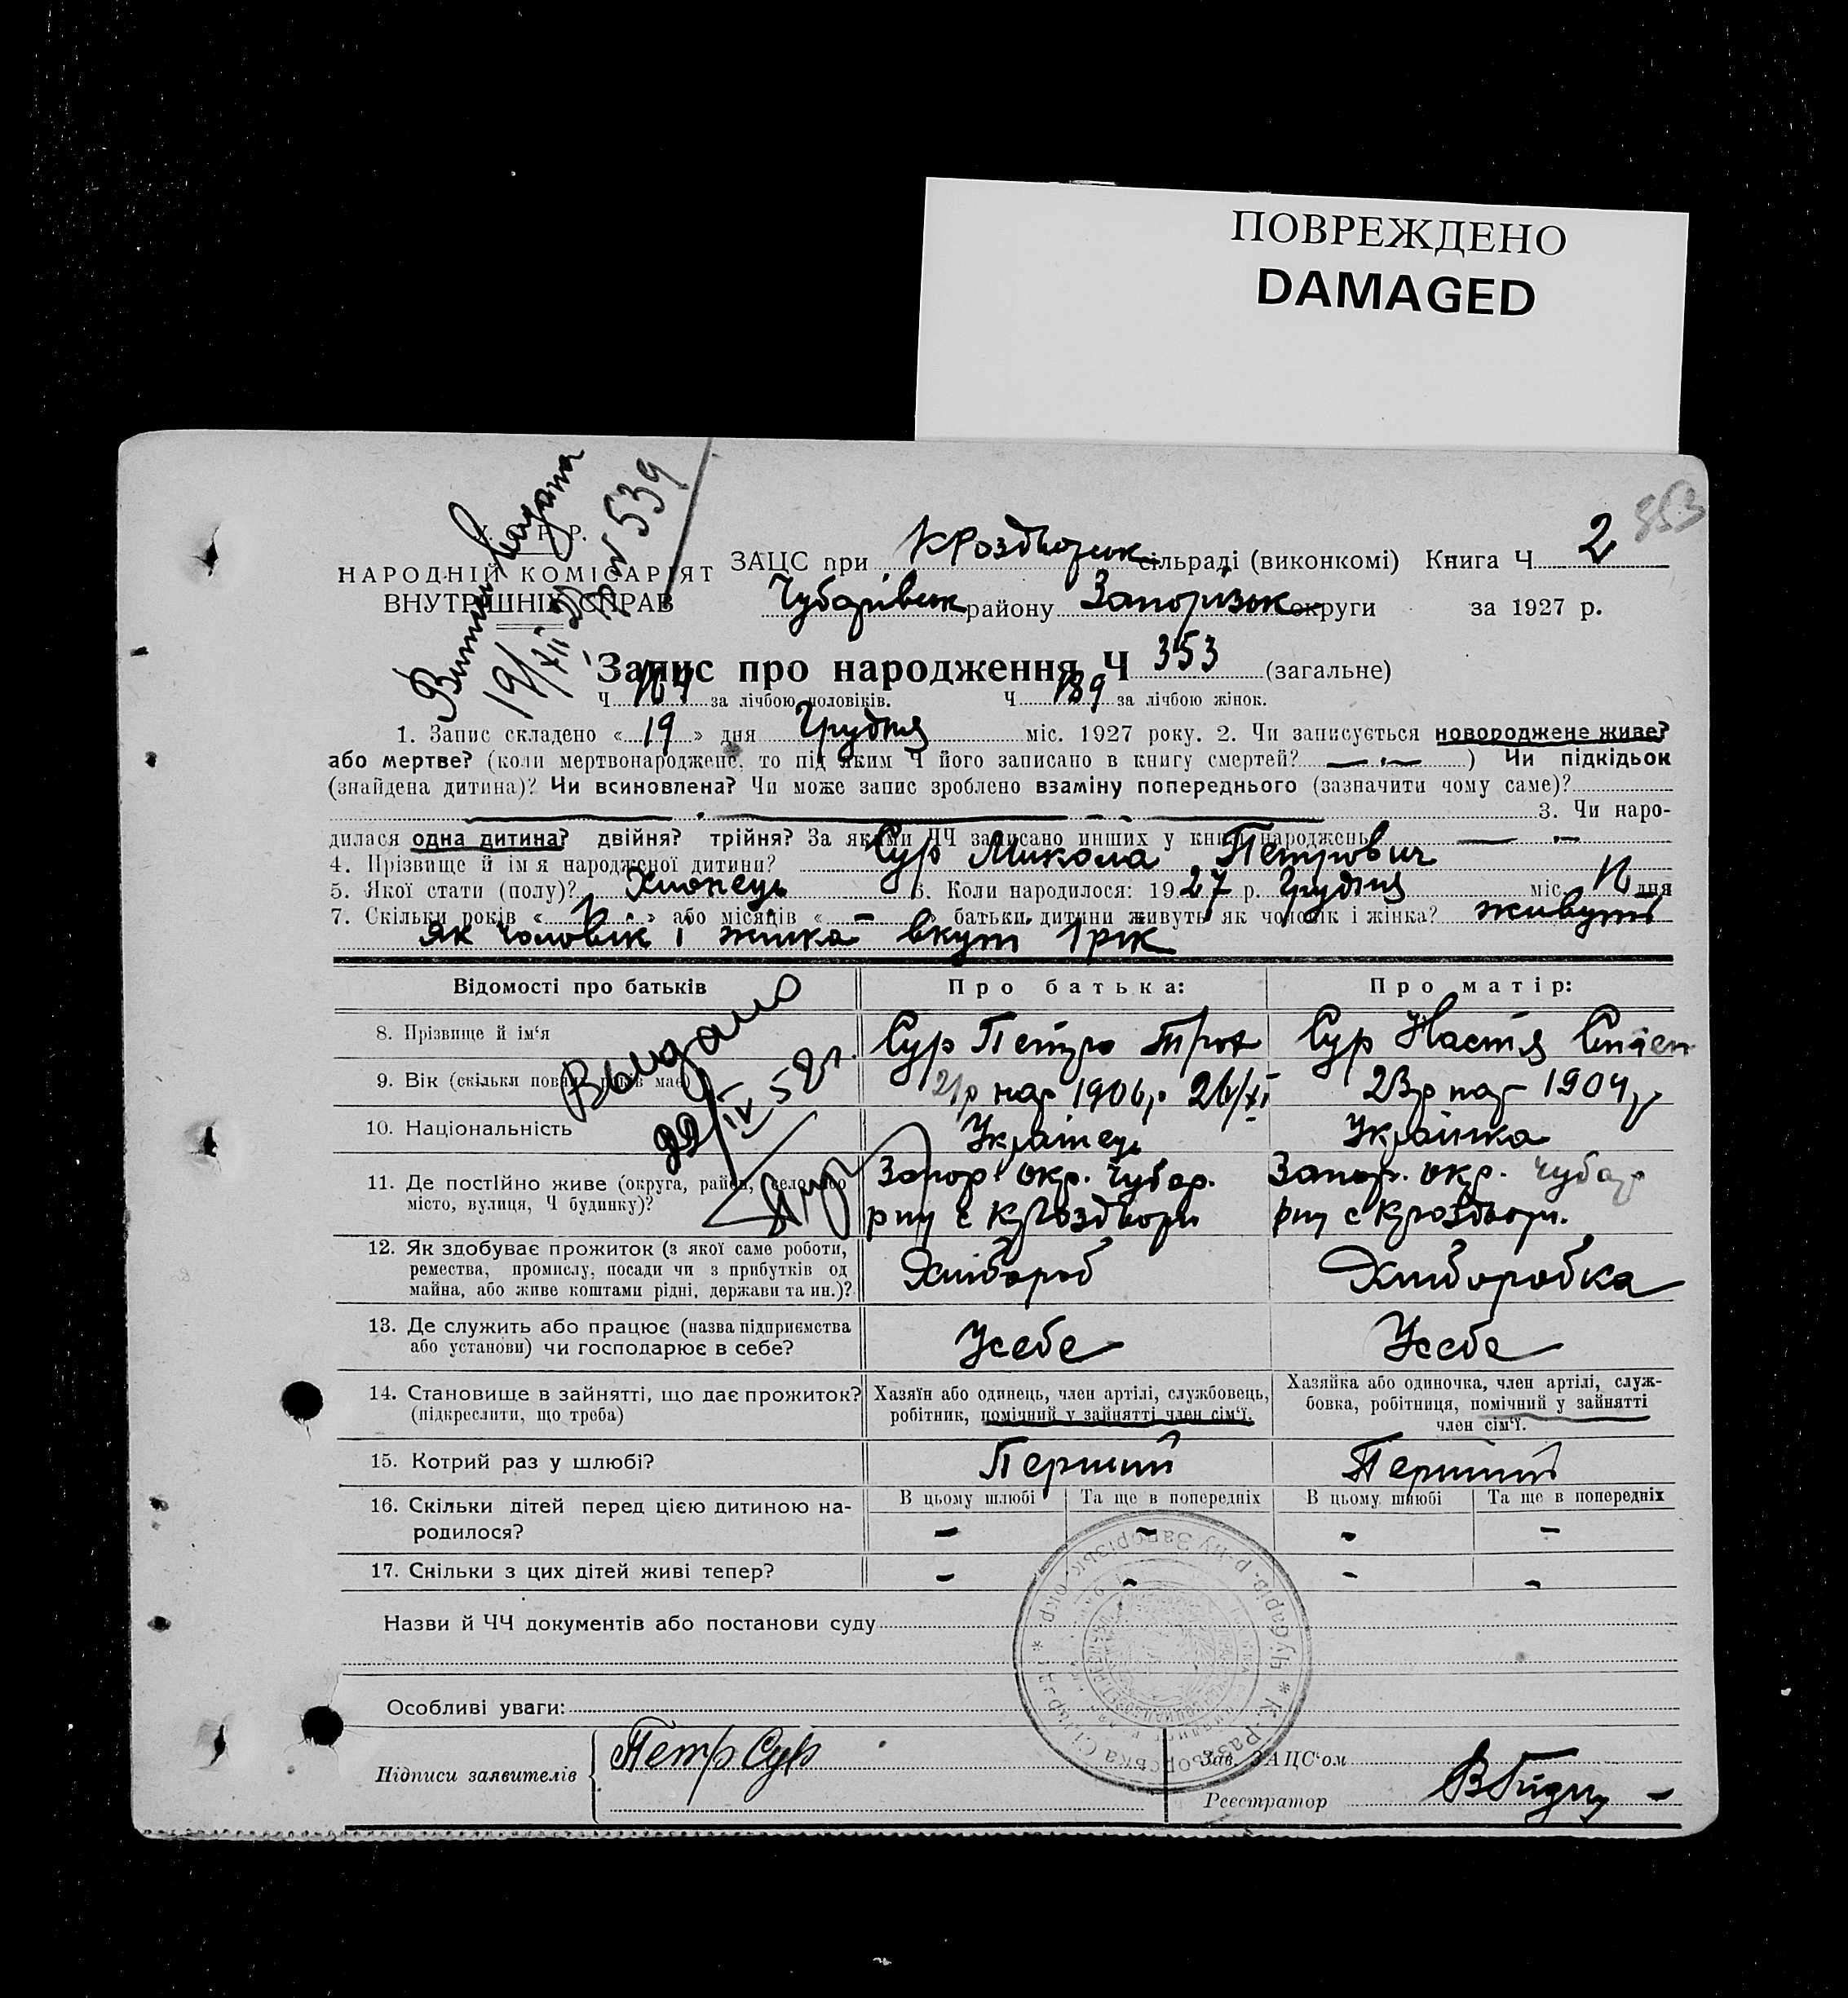 ПОВРЕЖДЕНО
DAMAGED
353
539
НАРОДНІЙ КОМІСАРІЯТ
ВНУТРІШНІХ СПРАВ
ЗАЦС при сільраді (виконкомі) Книга Ч 2
Чубарівськ району Запорізьк округи за 1927 р.
Запис про народження Ч 353 (загальне)
Ч 164 за лічбою чоловіків. Ч 189 за лічбою жінок.
1. Запис складено « 19 » дня Грудня міс. 1927 року. 2. Чи записується новороджене живе?
або мертве? (коли мертвонароджене, то під яким Ч його записано в книгу смертей? — . — ) Чи підкідьок
(знайдена дитина)? Чи всиновлена? Чи може запис зроблено взаміну попереднього (зазначити чому саме)?
3. Чи наро-
дилася одна дитина? двійня? трійня? За якими ЧЧ записано инших у книзі народжень — . —
4. Прізвище й ім'я народженої дитини? Сур Микола Петрович
5. Якої стати (полу)? Хлопець 6. Коли народилося: 1927 р. Грудня міс. дня
7. Скільки років « 1 » або місяців « – » батьки дитини живуть як чоловік і жінка? живуть
як чоловік і жінка вкупі 1 рік
Відомості про батьків Про батька: Про матір:
8. Прізвище й ім'я Сур Петро Сур Настя
9. Вік (скільки повних років має) 21р нар 1906р 26/XI 23р нар 1904р
Видано
22/IV 52г.
10. Національність Українець Українка
11. Де постійно живе (округа, район, село або
місто, вулиця, Ч будинку)?
Запор. окр. Чубар. Запор. окр. Чубар
рну с рну с
12. Як здобуває прожиток (з якої саме роботи,
ремества, промислу, посади чи з прибутків од
майна, або живе коштами рідні, держави та ин.)?
Хлібороб Хліборобка
13. Де служить або працює (назва підприємства
або установи) чи господарює в себе?
Усебе Усебе
14. Становище в зайнятті, що дає прожиток?
(підкреслити, що треба)
Хазяїн або одинець, член артілі, службовець,
робітник, помічний у зайнятті член сім'ї.
Хазяйка або одиночка, член артілі, служ-
бовка, робітниця, помічний у зайнятті
член сім'ї.
15. Котрий раз у шлюбі? Перший Перший
16. Скільки дітей перед цією дитиною на-
родилося?
В цьому шлюбі Та ще в попередніх В цьому шлюбі Та ще в попередніх
– – – –
17. Скільки з цих дітей живі тепер? – – – –
Назви й ЧЧ документів або постанови суду
Особливі уваги:
Підписи заявителів Петр Сур
Зав. ЗАЦС'ом
Реєстратор